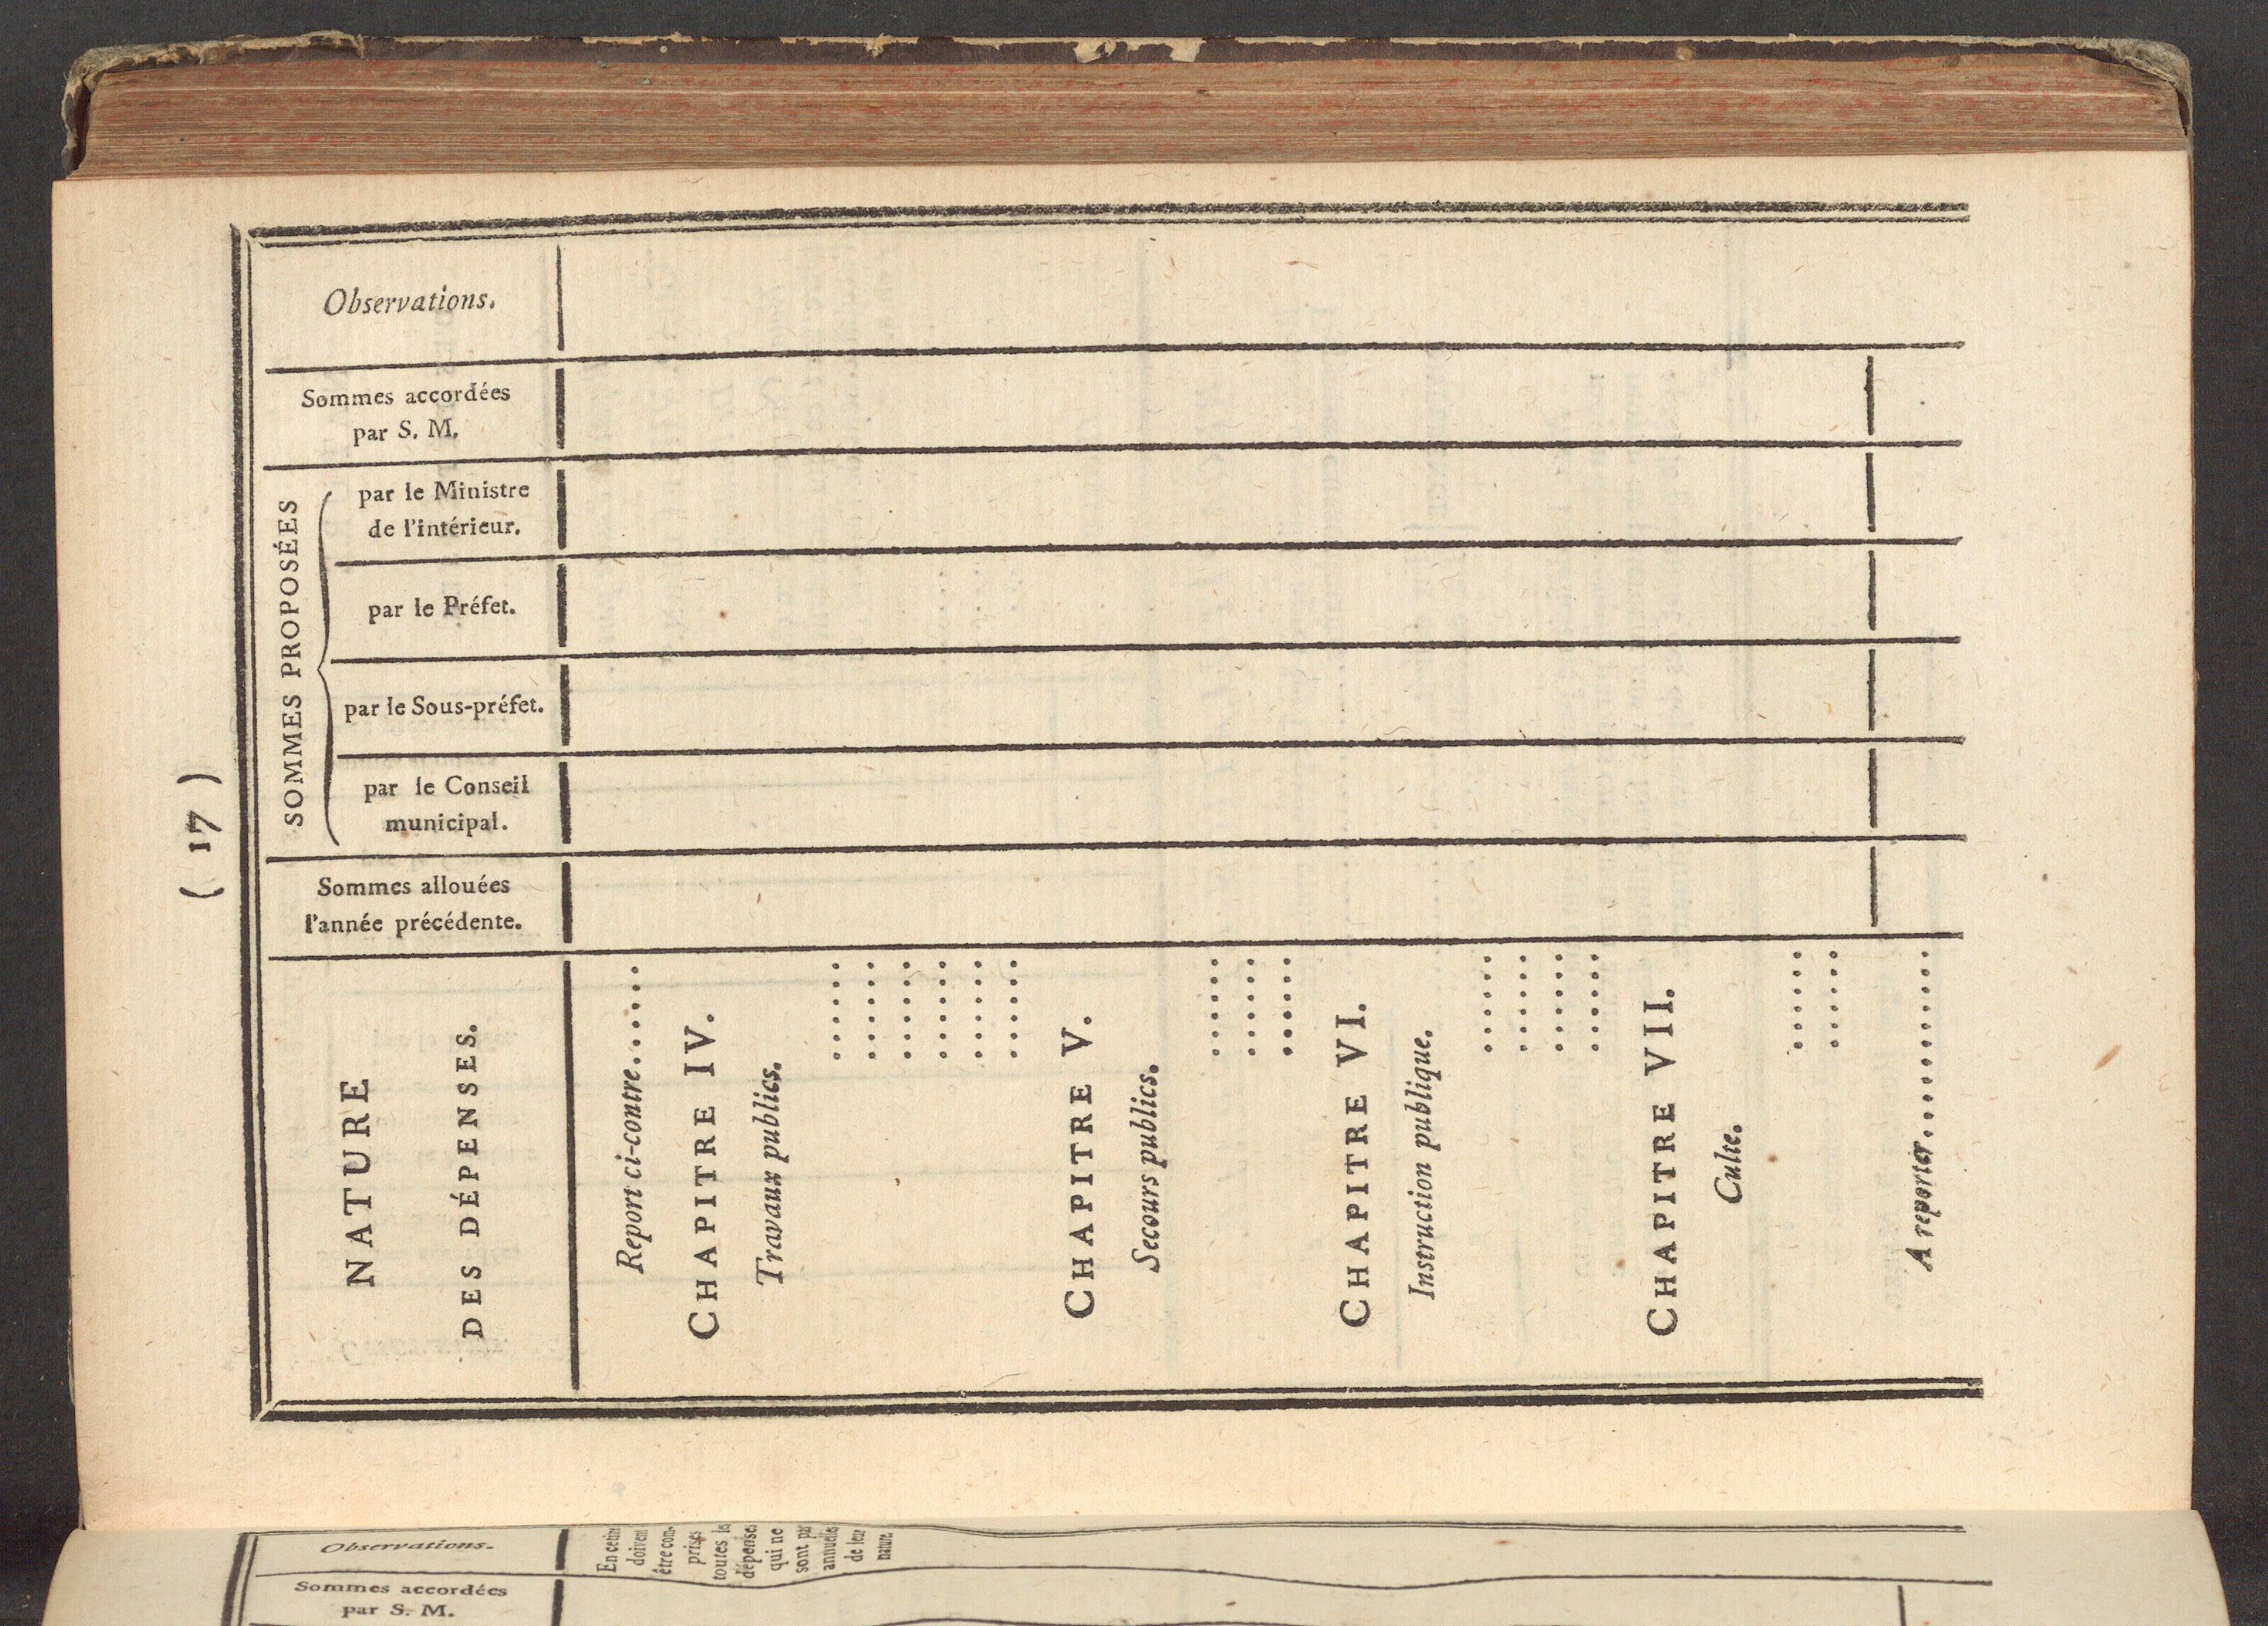 ( 17 )
NATURE
DES DÉPENSES.
Sommes allouées
l'année précédente.
SOMMES PROPOSÉES
par le Conseil
municipal.
par le Sous-préfet.
par le Préfet.
par le Ministre
de l'intérieur.
Sommes accordées
par S. M.
Observations.
Report ci-contre.......
CHAPITRE IV.
Travaux publics.
......
......
......
......
......
......
CHAPITRE V.
Secours publics.
......
......
......
CHAPITRE VI.
Instruction publique.
......
......
......
......
CHAPITRE VII.
Culte.
......
......
A reporter............
Observations.
Sommes accordées
par S. M.
doivent
être com-
prises
toutes
dépenses
qui ne
sont
annuelles
de leur
nature.